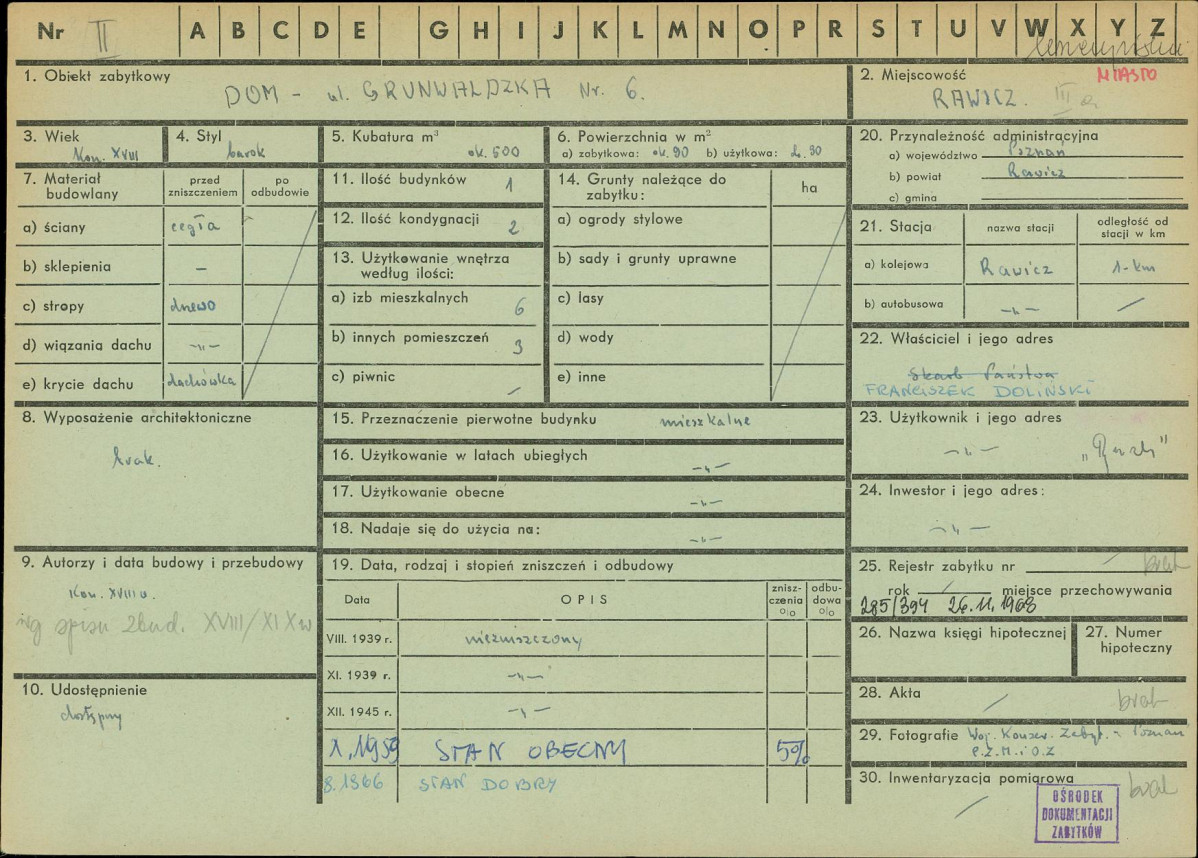 Nr II A B C D E F G H I J K L M N O P R S T U V W X Y Z
1. Obiekt zabytkowy
DOM - ul. GRUNWALDZKA Nr. 6.
2. Miejscowość MIASTO
RAWICZ. III a
3. Wiek
Kon. XVIII
4. Styl
barok
5. Kubatura m³
ok. 500
6. Powierzchnia w m²
a) zabytkowa: ok. 90 b) użytkowa: 90
7. Materiał budowlany
przed zniszczeniem
po odbudowie
a) ściany cegła
b) sklepienia —
c) stropy drewo
d) wiązania dachu —„—
e) krycie dachu dachówka
8. Wyposażenie architektoniczne
brak.
9. Autorzy i data budowy i przebudowy
Kon. XVIII w.
wg spisu zbud. XVIII/XIX w
10. Udostępnienie
dostępny
11. Ilość budynków 1
12. Ilość kondygnacji 2
13. Użytkowanie wnętrza
według ilości:
a) izb mieszkalnych 6
b) innych pomieszczeń 3
c) piwnic /
14. Grunty należące do
zabytku: ha
a) ogrody stylowe
b) sady i grunty uprawne
c) lasy
d) wody
e) inne
15. Przeznaczenie pierwotne budynku mieszkalne
16. Użytkowanie w latach ubiegłych —„—
17. Użytkowanie obecne —„—
18. Nadaje się do użycia na: —„—
19. Data, rodzaj i stopień zniszczeń i odbudowy
Data OPIS znisz-czenia % odbu-dowa %
VIII. 1939 r. niezniszczony
XI. 1939 r. —„—
XII. 1945 r. —„—
X. 1959 STAN OBECNY 5%
8.1966 STAN DOBRY
20. Przynależność administracyjna
a) województwo Poznań
b) powiat Rawicz
c) gmina
21. Stacja
nazwa stacji
odległość od stacji w km
a) kolejowa Rawicz 1-km
b) autobusowa —„— /
22. Właściciel i jego adres
Skarb Państwa
FRANCISZEK DOLIŃSKI
23. Użytkownik i jego adres
—„—
24. Inwestor i jego adres:
—„—
25. Rejestr zabytku nr / brak
rok / miejsce przechowywania
285/394 26.11.1968
26. Nazwa księgi hipotecznej
27. Numer hipoteczny
28. Akta / brak
29. Fotografie Woj. Konserw. Zabyt. - Poznań
P.Z.M. i O.Z
30. Inwentaryzacja pomiarowa brak
/
OŚRODEK
DOKUMENTACJI
ZABYTKÓW